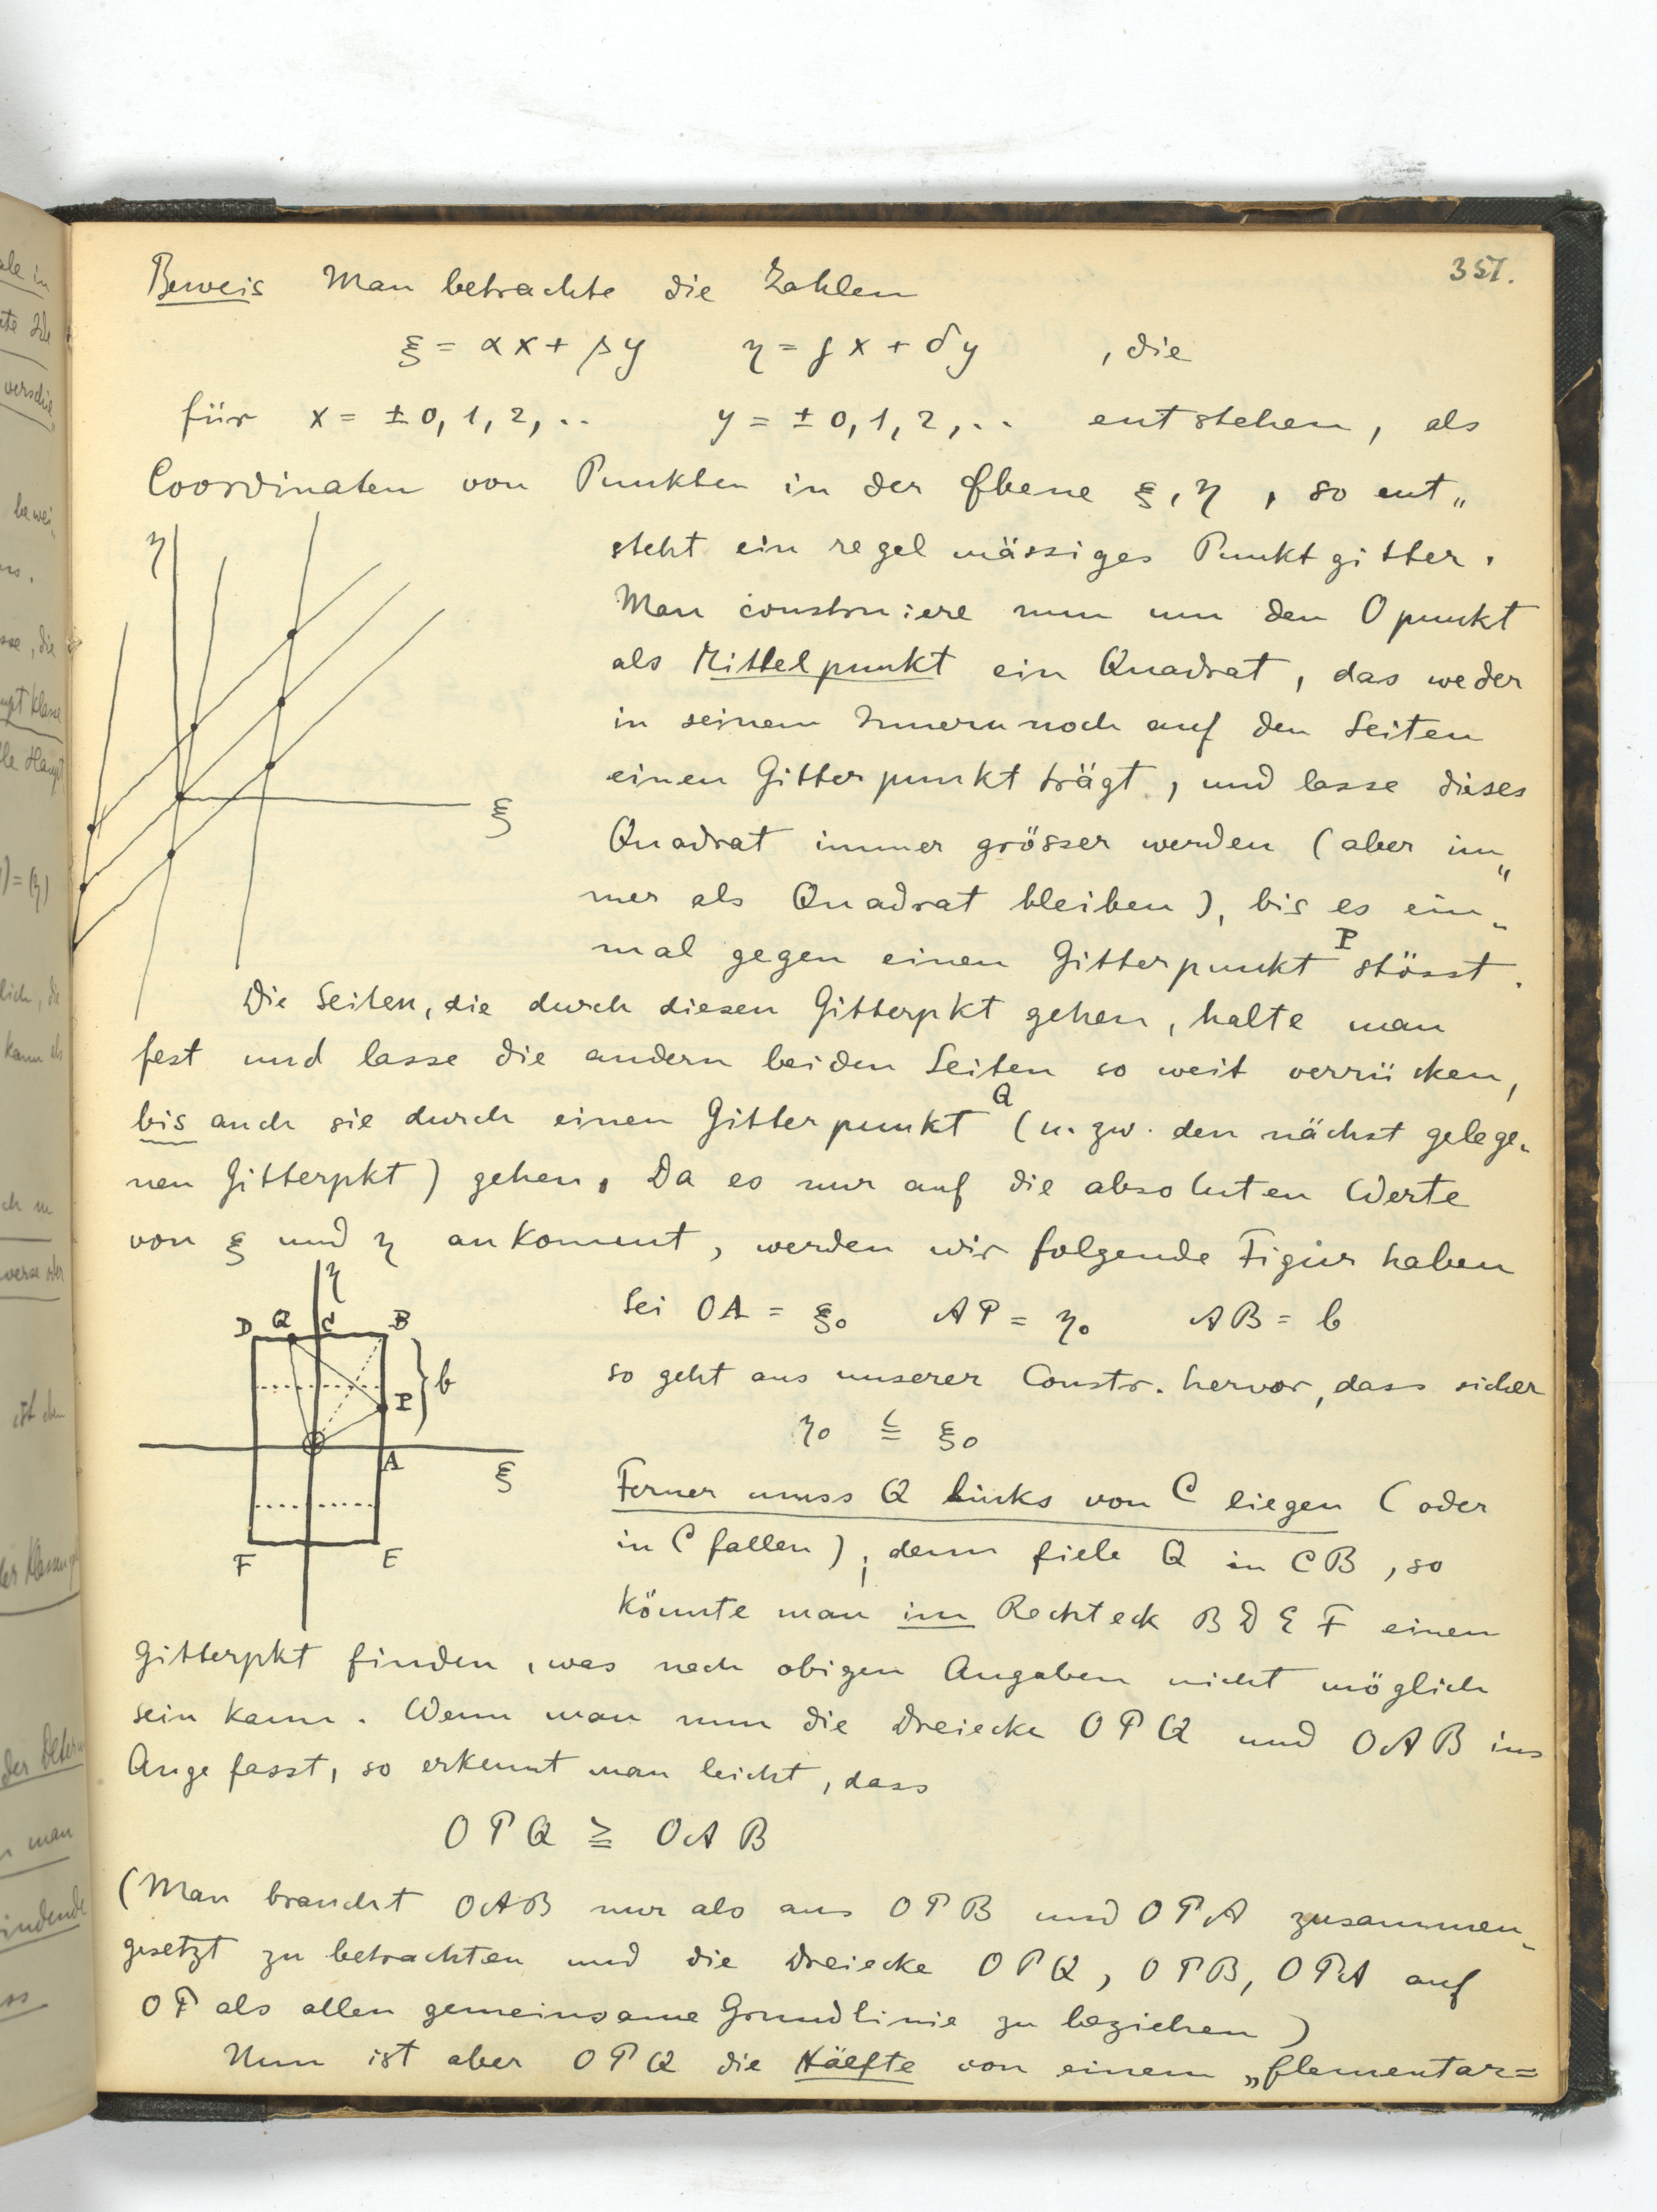 351.
Beweis Man betrachte die Zahlen
ξ = αx + βy η = γx + δy , die
für x = ± 0, 1, 2, .. y = ± 0, 1, 2, .. entstehen, als
Coordinaten von Punkten in der Ebene ξ, η , so ent„
steht ein regelmässiges Punktgitter.
Man construiere nun um den 0punkt
als Mittelpunkt ein Quadrat, das weder
in seinem Innern noch auf den Seiten
einen Gitterpunkt trägt, und lasse dieses
Quadrat immer grösser werden (aber im„
mer als Quadrat bleiben), bis es ein„
mal gegen einen Gitterpunkt P stösst.
Die Seiten, die durch diesen Gitterpkt gehen, halte man
fest und lasse die andern beiden Seiten so weit verrücken,
bis auch sie durch einen Gitterpunkt Q (u. zw. den nächst gelege„
nen Gitterpkt) gehen. Da es nur auf die absoluten Werte
von ξ und η ankommt, werden wir folgende Figur haben
Sei OA = ξ₀ AP = η₀ AB = b
so geht aus unserer Constr. hervor, dass sicher
η₀ ≦ ξ₀
Ferner muss Q links von C liegen (oder
in C fallen), denn fiele Q in CB, so
könnte man im Rechteck BDEF einen
Gitterpkt finden, was nach obigen Angaben nicht möglich
sein kann. Wenn man nun die Dreiecke OPQ und OAB ins
Auge fasst, so erkennt man leicht, dass
OPQ ≧ OAB
(Man braucht OAB nur als aus OPB und OPA zusammen„
gesetzt zu betrachten und die Dreiecke OPQ, OPB, OPA auf
OP als allen gemeinsame Grundlinie zu beziehen)
Nun ist aber OPQ die Hälfte von einem „Elementar=
η
ξ
η
D Q C B
b
P
A
ξ
F E